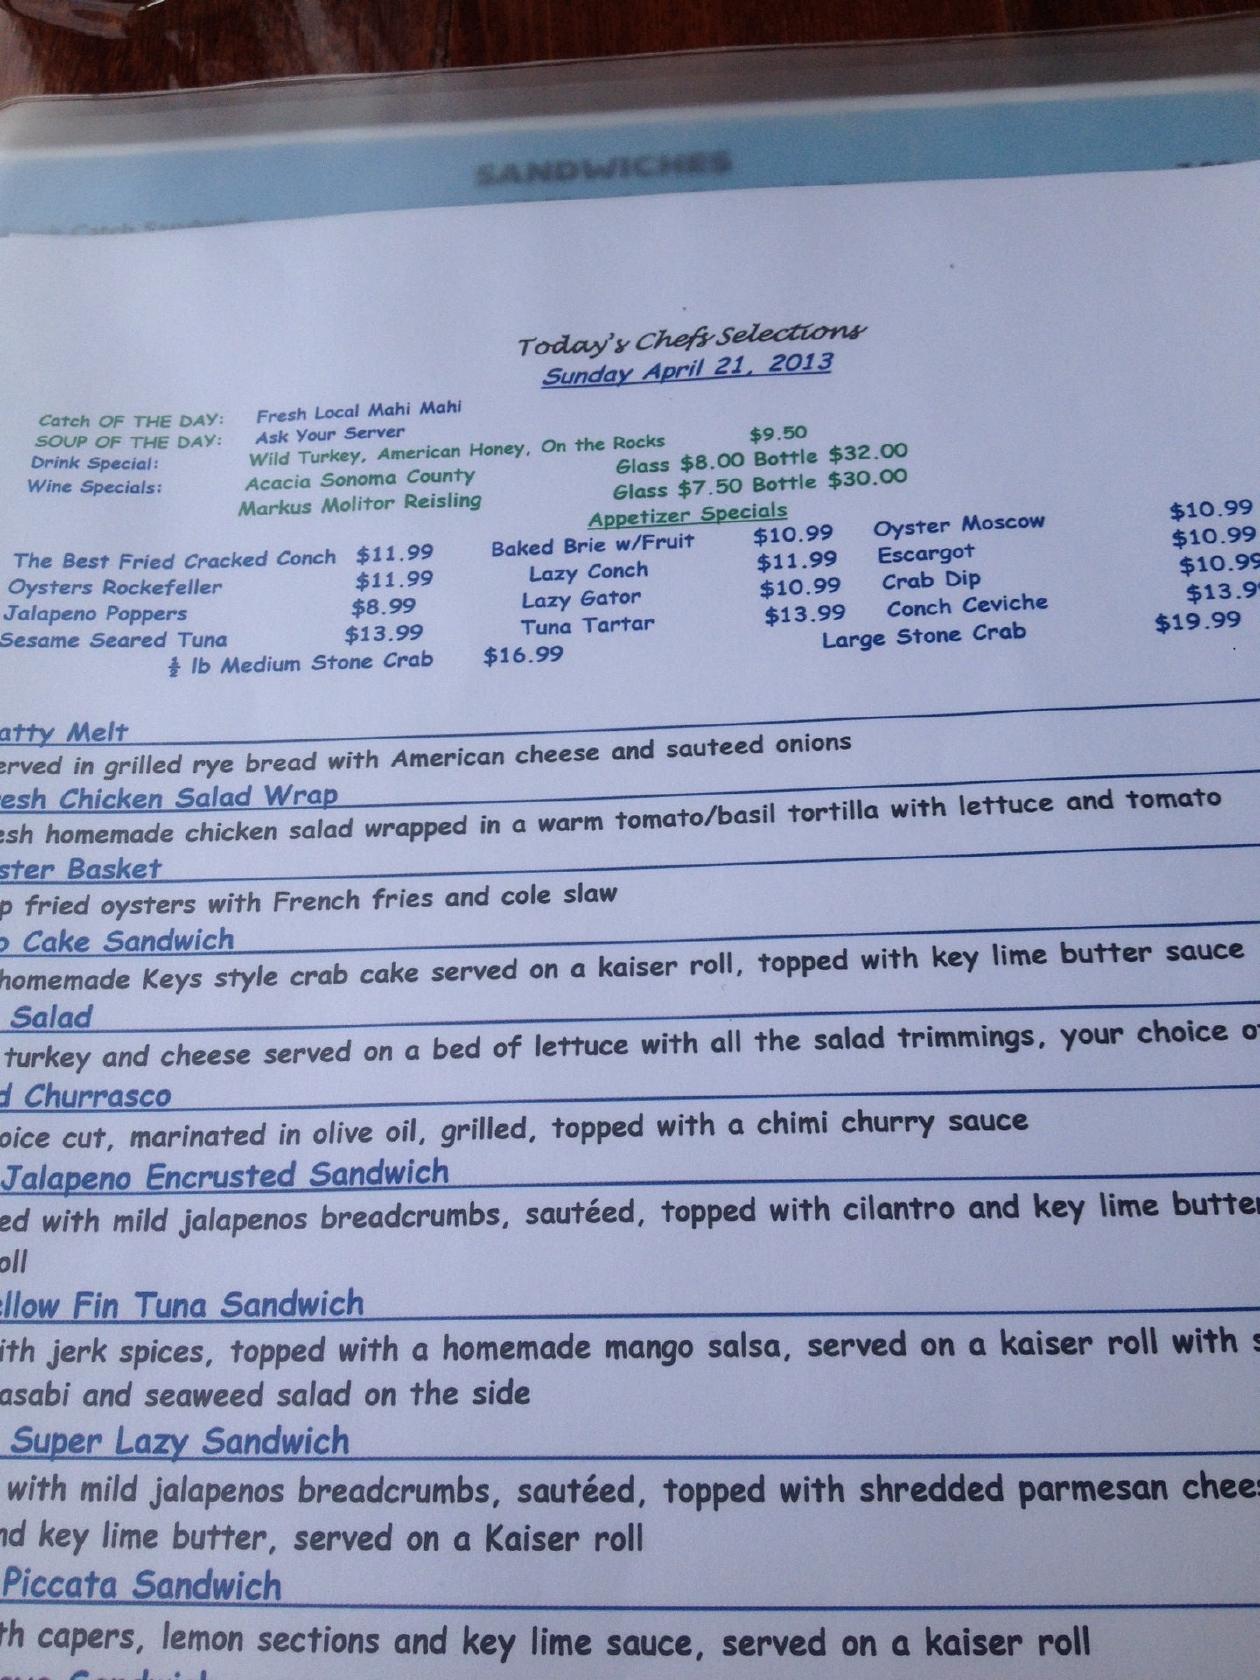 SANDWICHES
Today's Chefs Selections
Sunday April 21, 2013
Catch OF THE DAY: Fresh Local Mahi Mahi
SOUP OF THE DAY: Ask Your Server
Drink Special: Wild Turkey, American Honey, On the Rocks $9.50
Wine Specials: Acacia Sonoma County Glass $8.00 Bottle $32.00
Markus Molitor Reisling Glass $7.50 Bottle $30.00
Appetizer Specials
The Best Fried Cracked Conch $11.99 Baked Brie w/Fruit $10.99 Oyster Moscow $10.99
Oysters Rockefeller $11.99 Lazy Conch $11.99 Escargot $10.99
Jalapeno Poppers $8.99 Lazy Gator $10.99 Crab Dip $10.99
Sesame Seared Tuna $13.99 Tuna Tartar $13.99 Conch Ceviche $13.9
½ lb Medium Stone Crab $16.99 Large Stone Crab $19.99
atty Melt
erved in grilled rye bread with American cheese and sauteed onions
esh Chicken Salad Wrap
esh homemade chicken salad wrapped in a warm tomato/basil tortilla with lettuce and tomato
ster Basket
p fried oysters with French fries and cole slaw
Cake Sandwich
homemade Keys style crab cake served on a kaiser roll, topped with key lime butter sauce
Salad
turkey and cheese served on a bed of lettuce with all the salad trimmings, your choice o
d Churrasco
oice cut, marinated in olive oil, grilled, topped with a chimi churry sauce
Jalapeno Encrusted Sandwich
ed with mild jalapenos breadcrumbs, sautéed, topped with cilantro and key lime butter
oll
ellow Fin Tuna Sandwich
ith jerk spices, topped with a homemade mango salsa, served on a kaiser roll with s
asabi and seaweed salad on the side
Super Lazy Sandwich
with mild jalapenos breadcrumbs, sautéed, topped with shredded parmesan chees
nd key lime butter, served on a Kaiser roll
Piccata Sandwich
th capers, lemon sections and key lime sauce, served on a kaiser roll